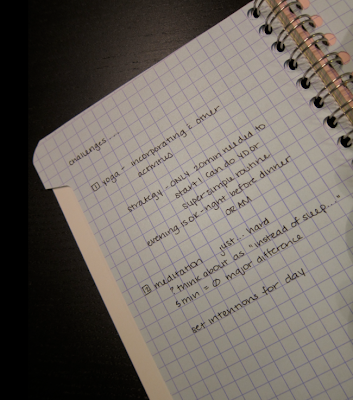 challenges....
1 yoga - incorporating & other
activities
strategy - ONLY 20min needed to
start! can do YD or
super simple routine
evening is OK - right before dinner
OR AM
2 meditation just.. hard
? think about as "instead of sleep..."
5 min = major difference
set intentions for day